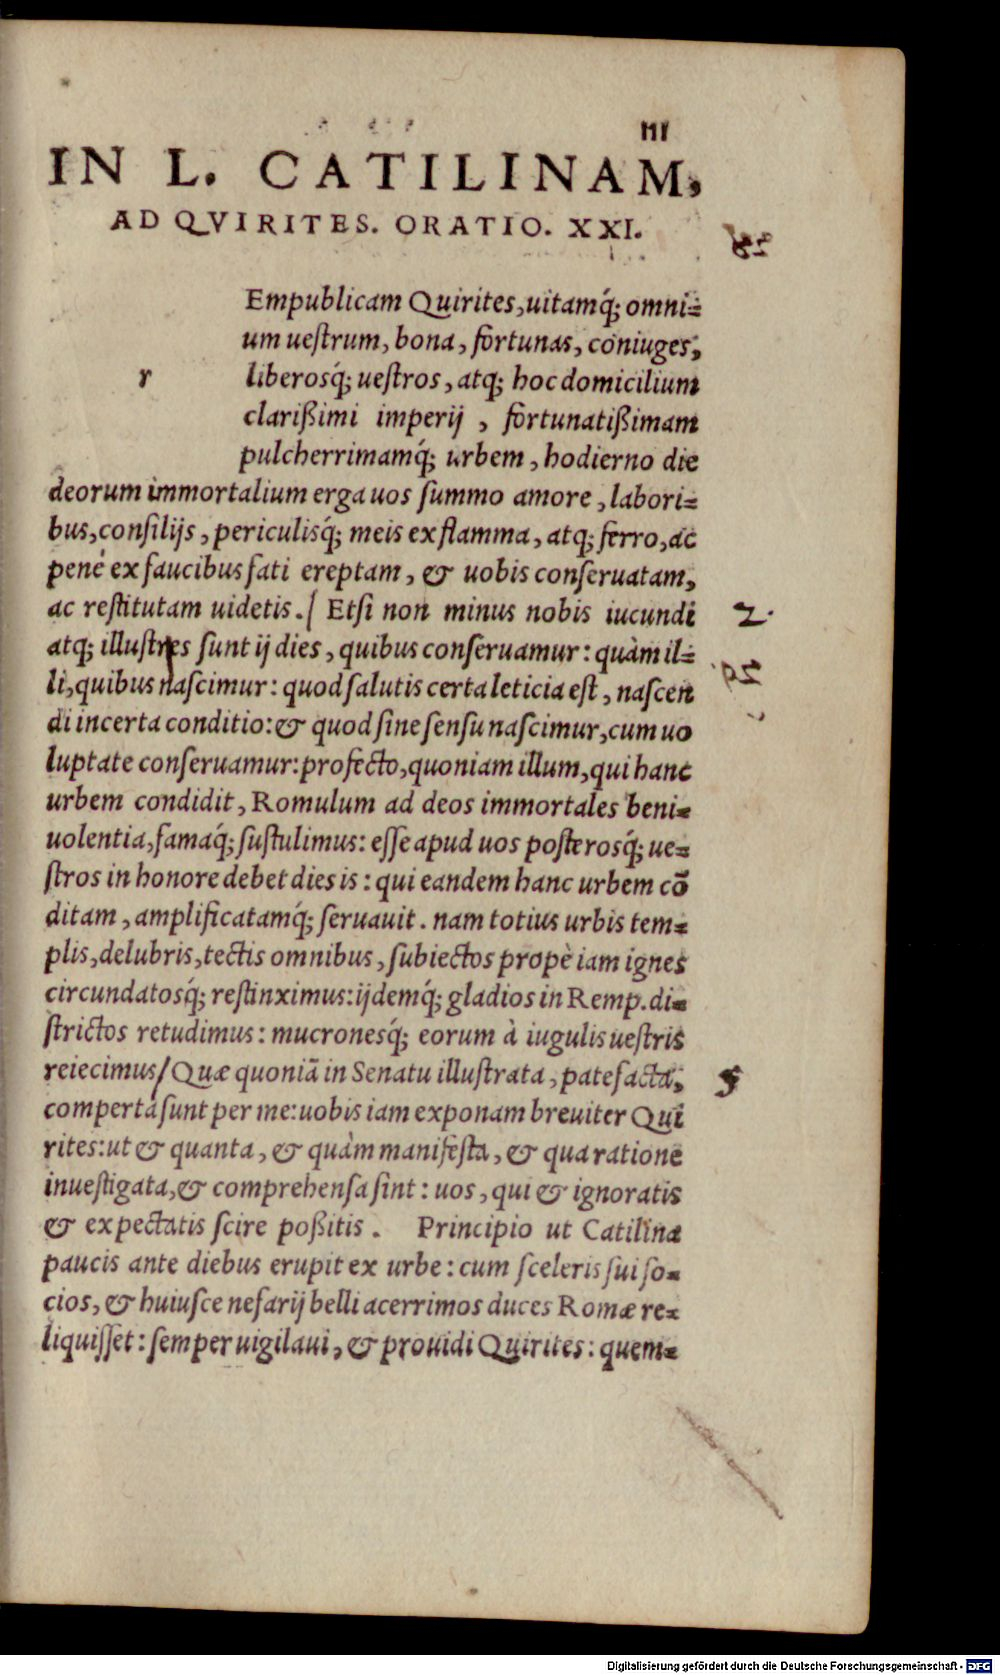 III
IN L. CATILINAM,
AD QVIRITES. ORATIO. XXI.
Empublicam Quirites, uitamq́; omni=
um uestrum, bona, fortunas, coniuges,
r liberosq́; uestros, atq; hoc domicilium
clarißimi imperij, fortunatißimam
pulcherrimamq́; urbem, hodierno die
deorum immortalium erga uos summo amore, labori=
bus, consilijs, periculisq́; meis ex flamma, atq; ferro, ac
pené ex faucibus fati ereptam, & uobis conseruatam,
ac restitutam uidetis. / Etsi non minus nobis iucundi 2.
atq; illustres sunt ij dies, quibus conseruamur: quàm il=
li, quibus nascimur: quod salutis certa leticia est, nascen
di incerta conditio: & quod sine sensu nascimur, cum uo
luptate conseruamur: profecto, quoniam illum, qui hanc
urbem condidit, Romulum ad deos immortales beni=
uolentia, famaq́; sustulimus: esse apud uos posterosq́; ue=
stros in honore debet dies is: qui eandem hanc urbem cō
ditam, amplificatamq́; seruauit. nam totius urbis tem=
plis, delubris, tectis omnibus, subiectos propè iam ignes
circundatosq́; restinximus: ijdemq́; gladios in Remp. di=
strictos retudimus: mucronesq́; eorum à iugulis uestris
reiecimus/ Quæ quoniā in Senatu illustrata, patefacta, 3
comperta sunt per me: uobis iam exponam breuiter Qui
rites: ut & quanta, & quàm manifesta, & qua ratione
inuestigata, & comprehensa sint: uos, qui & ignoratis
& expectatis scire poßitis. Principio ut Catilina
paucis ante diebus erupit ex urbe: cum sceleris sui so=
cios, & huiusce nefarij belli acerrimos duces Romæ re=
liquisset: semper uigilaui, & prouidi Quirites: quem=
Digitalisierung gefördert durch die Deutsche Forschungsgemeinschaft - DFG